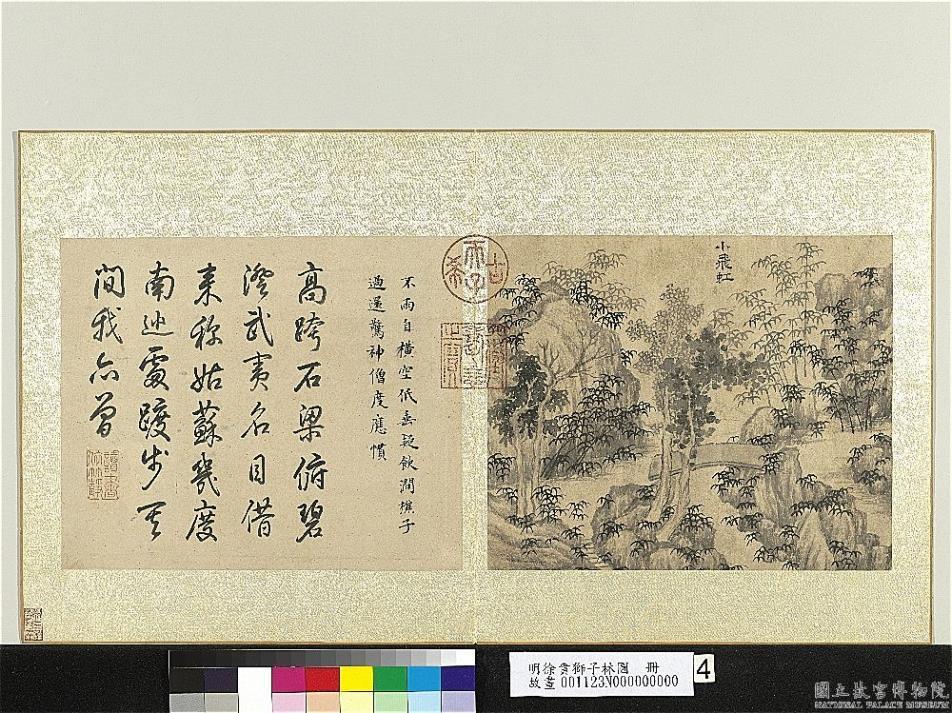 小飛虹
不雨自橫空低垂疑飲澗樵子
過還驚神僧度應慣
高跨石梁俯碧
澄武夷名目借
來稱姑蘇幾度
南巡處蹝步其
間我亦曾
明徐賁獅子林圖 冊
故畫 001123N000000000
4
國立故宮博物院
NATIONAL PALACE MUSEUM